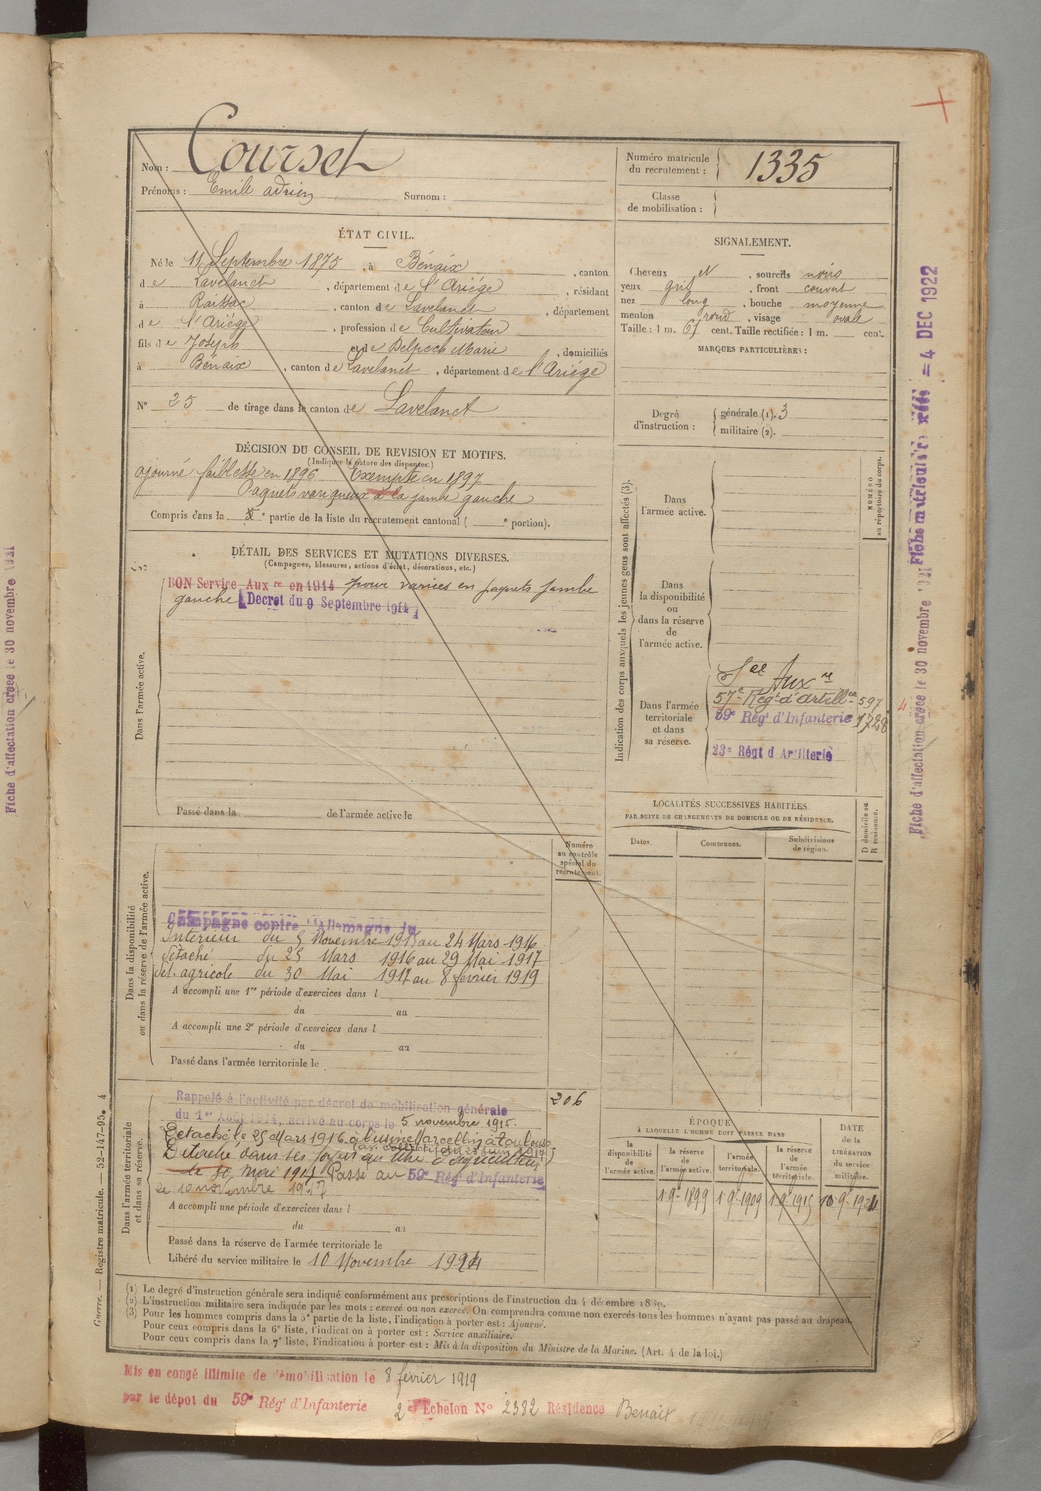 Nom : Courset
Prénoms : Emile adrien Surnom :
Numéro matricule du recrutement : 1335
Classe de mobilisation :
ÉTAT CIVIL.
Né le 11 Septembre 1875, à Bénaix, canton
de Lavelanet, département de l'Ariége, résidant
à Raissac, canton de Lavelanet, département
de l'Ariége, profession de Cultivateur
fils de Joseph et de Delpech Marie, domiciliés
à Bénaix, canton de Lavelanet, département de l'Ariége
N° 25 de tirage dans le canton de Lavelanet
SIGNALEMENT.
Cheveux N, sourcils noirs
yeux gris, front couvert
nez long, bouche moyenne
menton rond, visage ovale
Taille : 1 m. 67 cent. Taille rectifiée : 1 m. cent.
MARQUES PARTICULIÈRES :
Degré d'instruction : générale (1). 3
militaire (2).
DÉCISION DU CONSEIL DE REVISION ET MOTIFS.
(Indiquer la nature des dispenses.)
ajourné faiblesse en 1896 Exempté en 1897
Paquets variqueux à la jambe gauche
Compris dans la 5e partie de la liste du recrutement cantonal ( e portion).
DÉTAIL DES SERVICES ET MUTATIONS DIVERSES.
(Campagnes, blessures, actions d'éclat, décorations, etc.)
Dans l'armée active.
BON Service Aux re en 1914 pour varices en paquets jambe
gauche Décret du 9 Septembre 1914
Passé dans la de l'armée active le
Indication des corps auxquels les jeunes gens sont affectés (3).
NUMÉRO au répertoire du corps.
Dans l'armée active.
Dans la disponibilité ou dans la réserve de l'armée active.
Dans l'armée territoriale et dans sa réserve.
Sce Aux re
57e Régt d'Artillie 597
59e Régt d'Infanterie 1728
23e Régt d'Artillerie
LOCALITÉS SUCCESSIVES HABITÉES
PAR SUITE DE CHANGEMENTS DE DOMICILE OU DE RÉSIDENCE.
Dates. Communes. Subdivisions de région. D domicile ou R résidence.
Dans la disponibilité ou dans la réserve de l'armée active.
Numéro au contrôle spécial du recrutement.
Campagne contre l'Allemagne du
Intérieur du 5 Novembre 1915 au 24 Mars 1916
Détaché du 25 Mars 1916 au 29 Mai 1917
Dét. agricole du 30 Mai 1917 au 8 février 1919
A accompli une 1re période d'exercices dans l
du au
A accompli une 2e période d'exercices dans l
du au
Passé dans l'armée territoriale le
Dans l'armée territoriale et dans sa réserve.
206
Rappelé à l'activité par décret de mobilisation générale
du 1er Août 1914, arrivé au corps le 5 novembre 1915.
Détaché le 25 Mars 1916 à l'usine Marcellin à Toulouse
Détaché dans ses foyers au titre d'agriculteur
le 30 Mai 1917 Passé au 59e Régt d'Infanterie
le 10 novembre 1917
A accompli une période d'exercices dans l
du au
Passé dans la réserve de l'armée territoriale le
Libéré du service militaire le 10 Novembre 1924
ÉPOQUE
À LAQUELLE L'HOMME DOIT PASSER DANS
la disponibilité de l'armée active. la réserve de l'armée active. l'armée territoriale. la réserve de l'armée territoriale.
DATE de la LIBÉRATION du service militaire.
1 9e 1899 1 9e 1909 1 9e 1915 10-9-1924
(1) Le degré d'instruction générale sera indiqué conformément aux prescriptions de l'instruction du 4 décembre 1889.
(2) L'instruction militaire sera indiquée par les mots : exercé ou non exercé. On comprendra comme non exercés tous les hommes n'ayant pas passé au drapeau.
(3) Pour les hommes compris dans la 5e partie de la liste, l'indication à porter est : Ajourné.
Pour ceux compris dans la 6e liste, l'indication à porter est : Service auxiliaire.
Pour ceux compris dans la 7e liste, l'indication à porter est : Mis à la disposition du Ministre de la Marine. (Art. 4 de la loi.)
Guerre. — Registre matricule. — 52-147-95. 4
Mis en congé illimité de démobilisation le 8 février 1919
par le dépôt du 59e Régt d'Infanterie 2e Echelon N° 2382 Résidence Benaix
Fiche d'affectation créée le 30 novembre 1921
Fiche d'affectation créée le 30 novembre 1921
4 DEC 1922